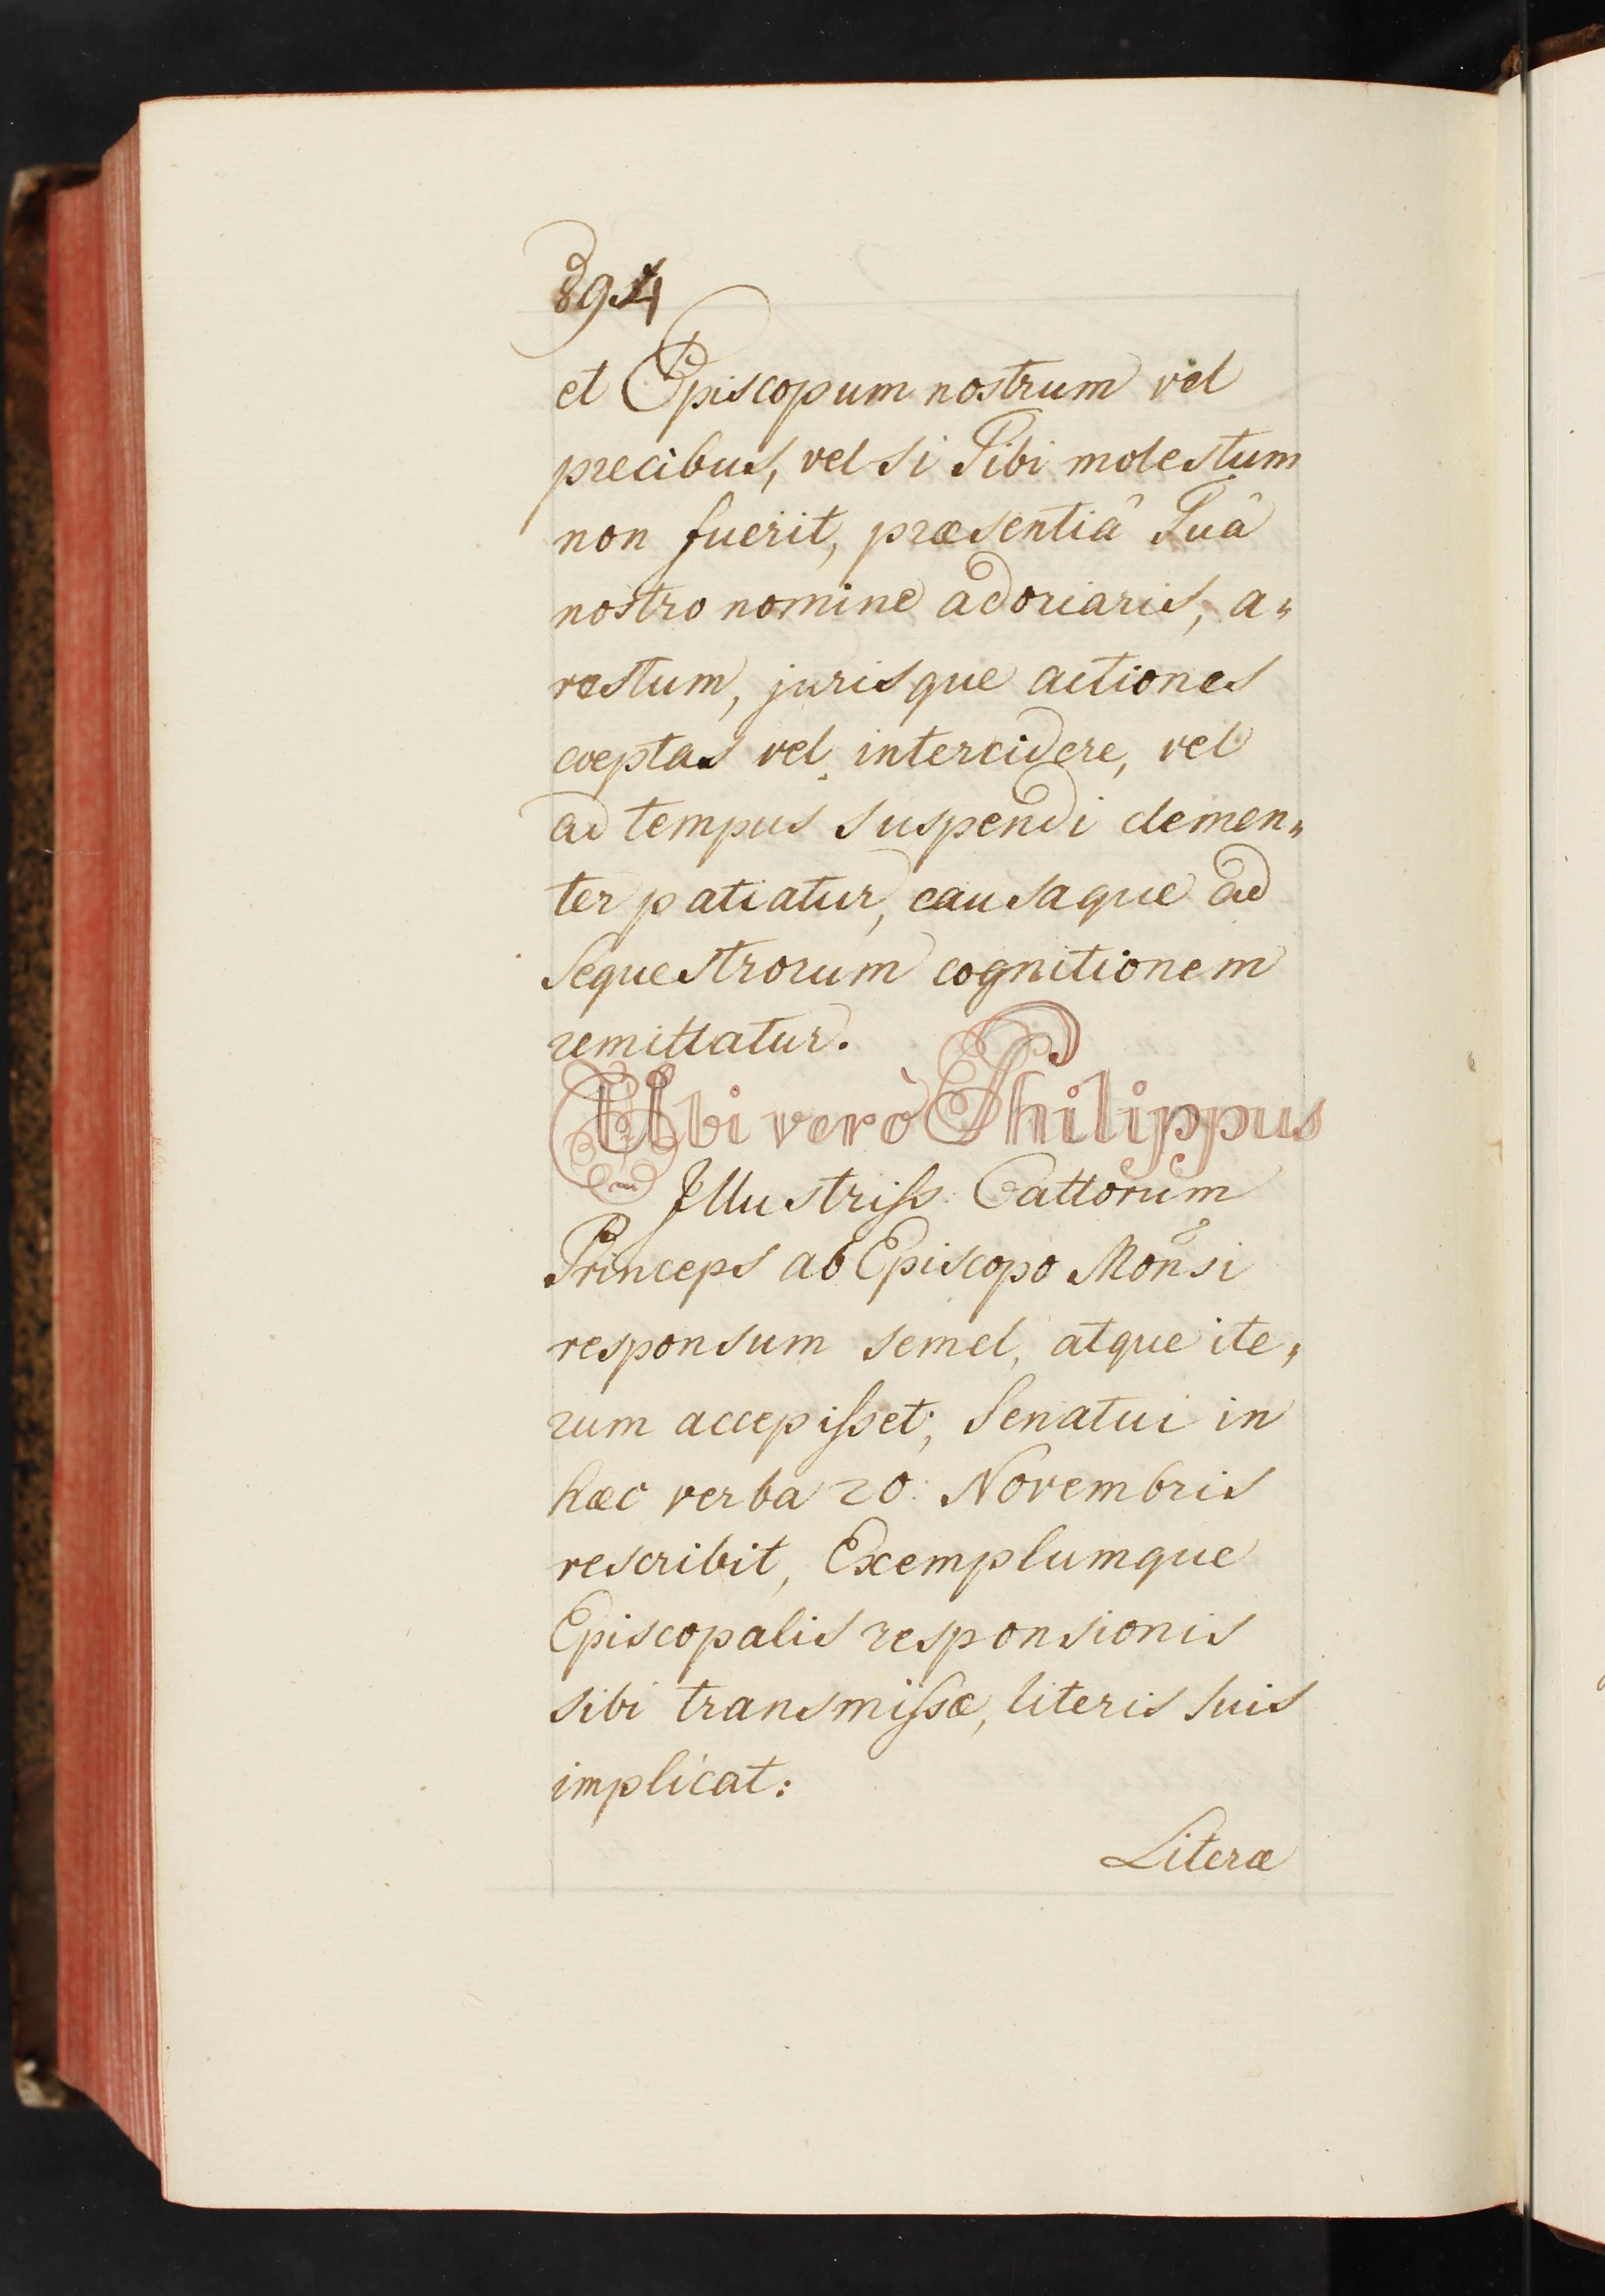 894
et Episcopum nostrum vel
precibus, vel si Tibi molestum
non fuerit, præsentiâ Tuâ
nostro nomine adoriaris, a„
restum, jurisque actiones
cœptas vel intercidere, vel
ad tempus suspendi clemen„
ter patiatur, causaque ad
Sequestrorum cognitionem
remittatur.
Ubi verò Philippus
Illustriss: Cattorum
Princeps ab Episcopo Mon̄si
responsum semel, atque ite„
rum accepisset; Senatui in
hæc verba 20. Novembris
rescribit, Exemplumque
Episcopalis responsionis
sibi transmissæ, literis suis
implicat:
Literæ